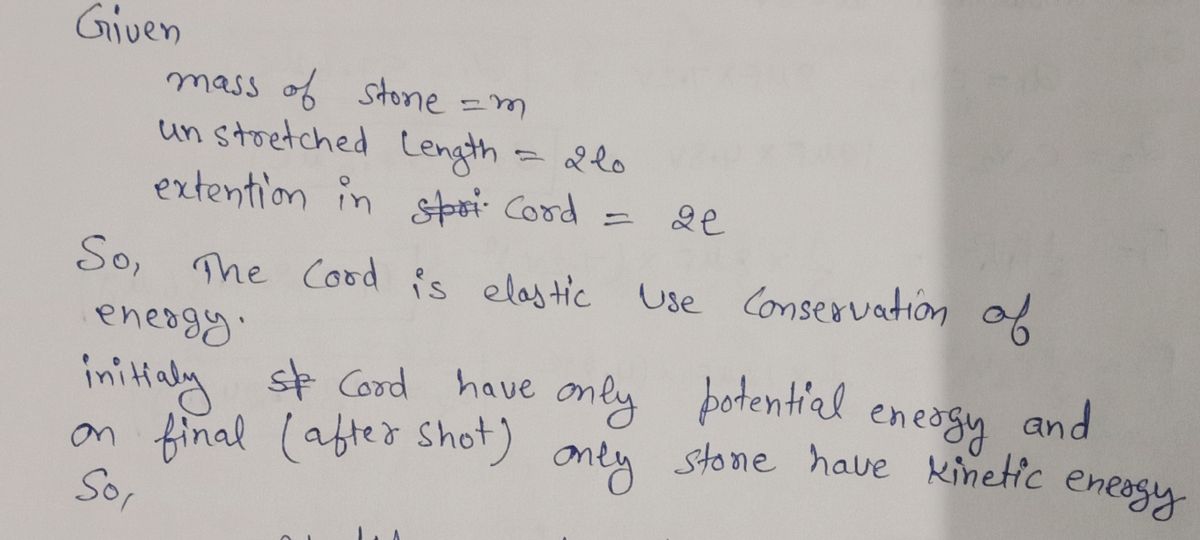 Given
mass of stone = m
unstretched length = 2l0
extention in cord = 2e
So, The Cord is elastic use Conservation of
energy.
initialy Cord have only potential energy and
on final (after shot) only stone have kinetic energy
So,